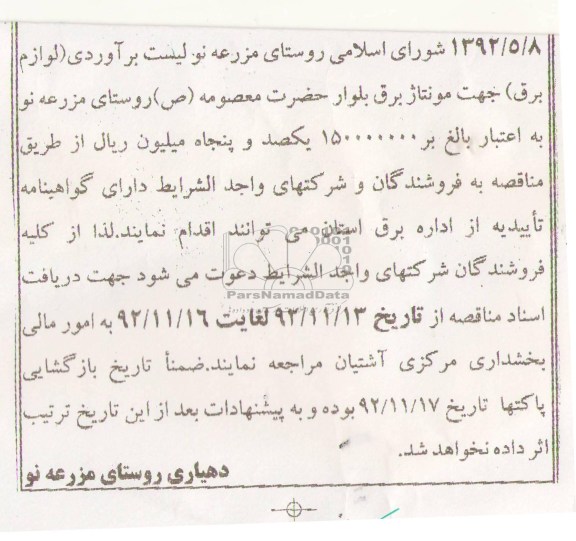 ۱۳۹۲/۵/۸ شورای اسلامی روستای مزرعه نو لیست برآوردی(لوازم
برق) جهت مونتاژ برق بلوار حضرت معصومه (ص)روستای مزرعه نو
به اعتبار بالغ بر ۱۵۰۰۰۰۰۰۰ یکصد و پنجاه میلیون ریال از طریق
مناقصه به فروشندگان و شرکتهای واجد الشرایط دارای گواهینامه
تأییدیه از اداره برق استان می توانند اقدام نمایند.لذا از کلیه
فروشندگان شرکتهای واجد الشرایط دعوت می شود جهت دریافت
ParsNamadData
اسناد مناقصه از تاریخ ۹۲/۱۱/۱۳ لغایت ۹۲/۱۱/۱۶ به امور مالی
بخشداری مرکزی آشتیان مراجعه نمایند.ضمنأ تاریخ بازگشایی
پاکتها تاریخ ۹۲/۱۱/۱۷بوده و به پیشنهادات بعد از این تاریخ ترتیب
اثر داده نخواهد شد.
دهیاری روستای مزرعه نو